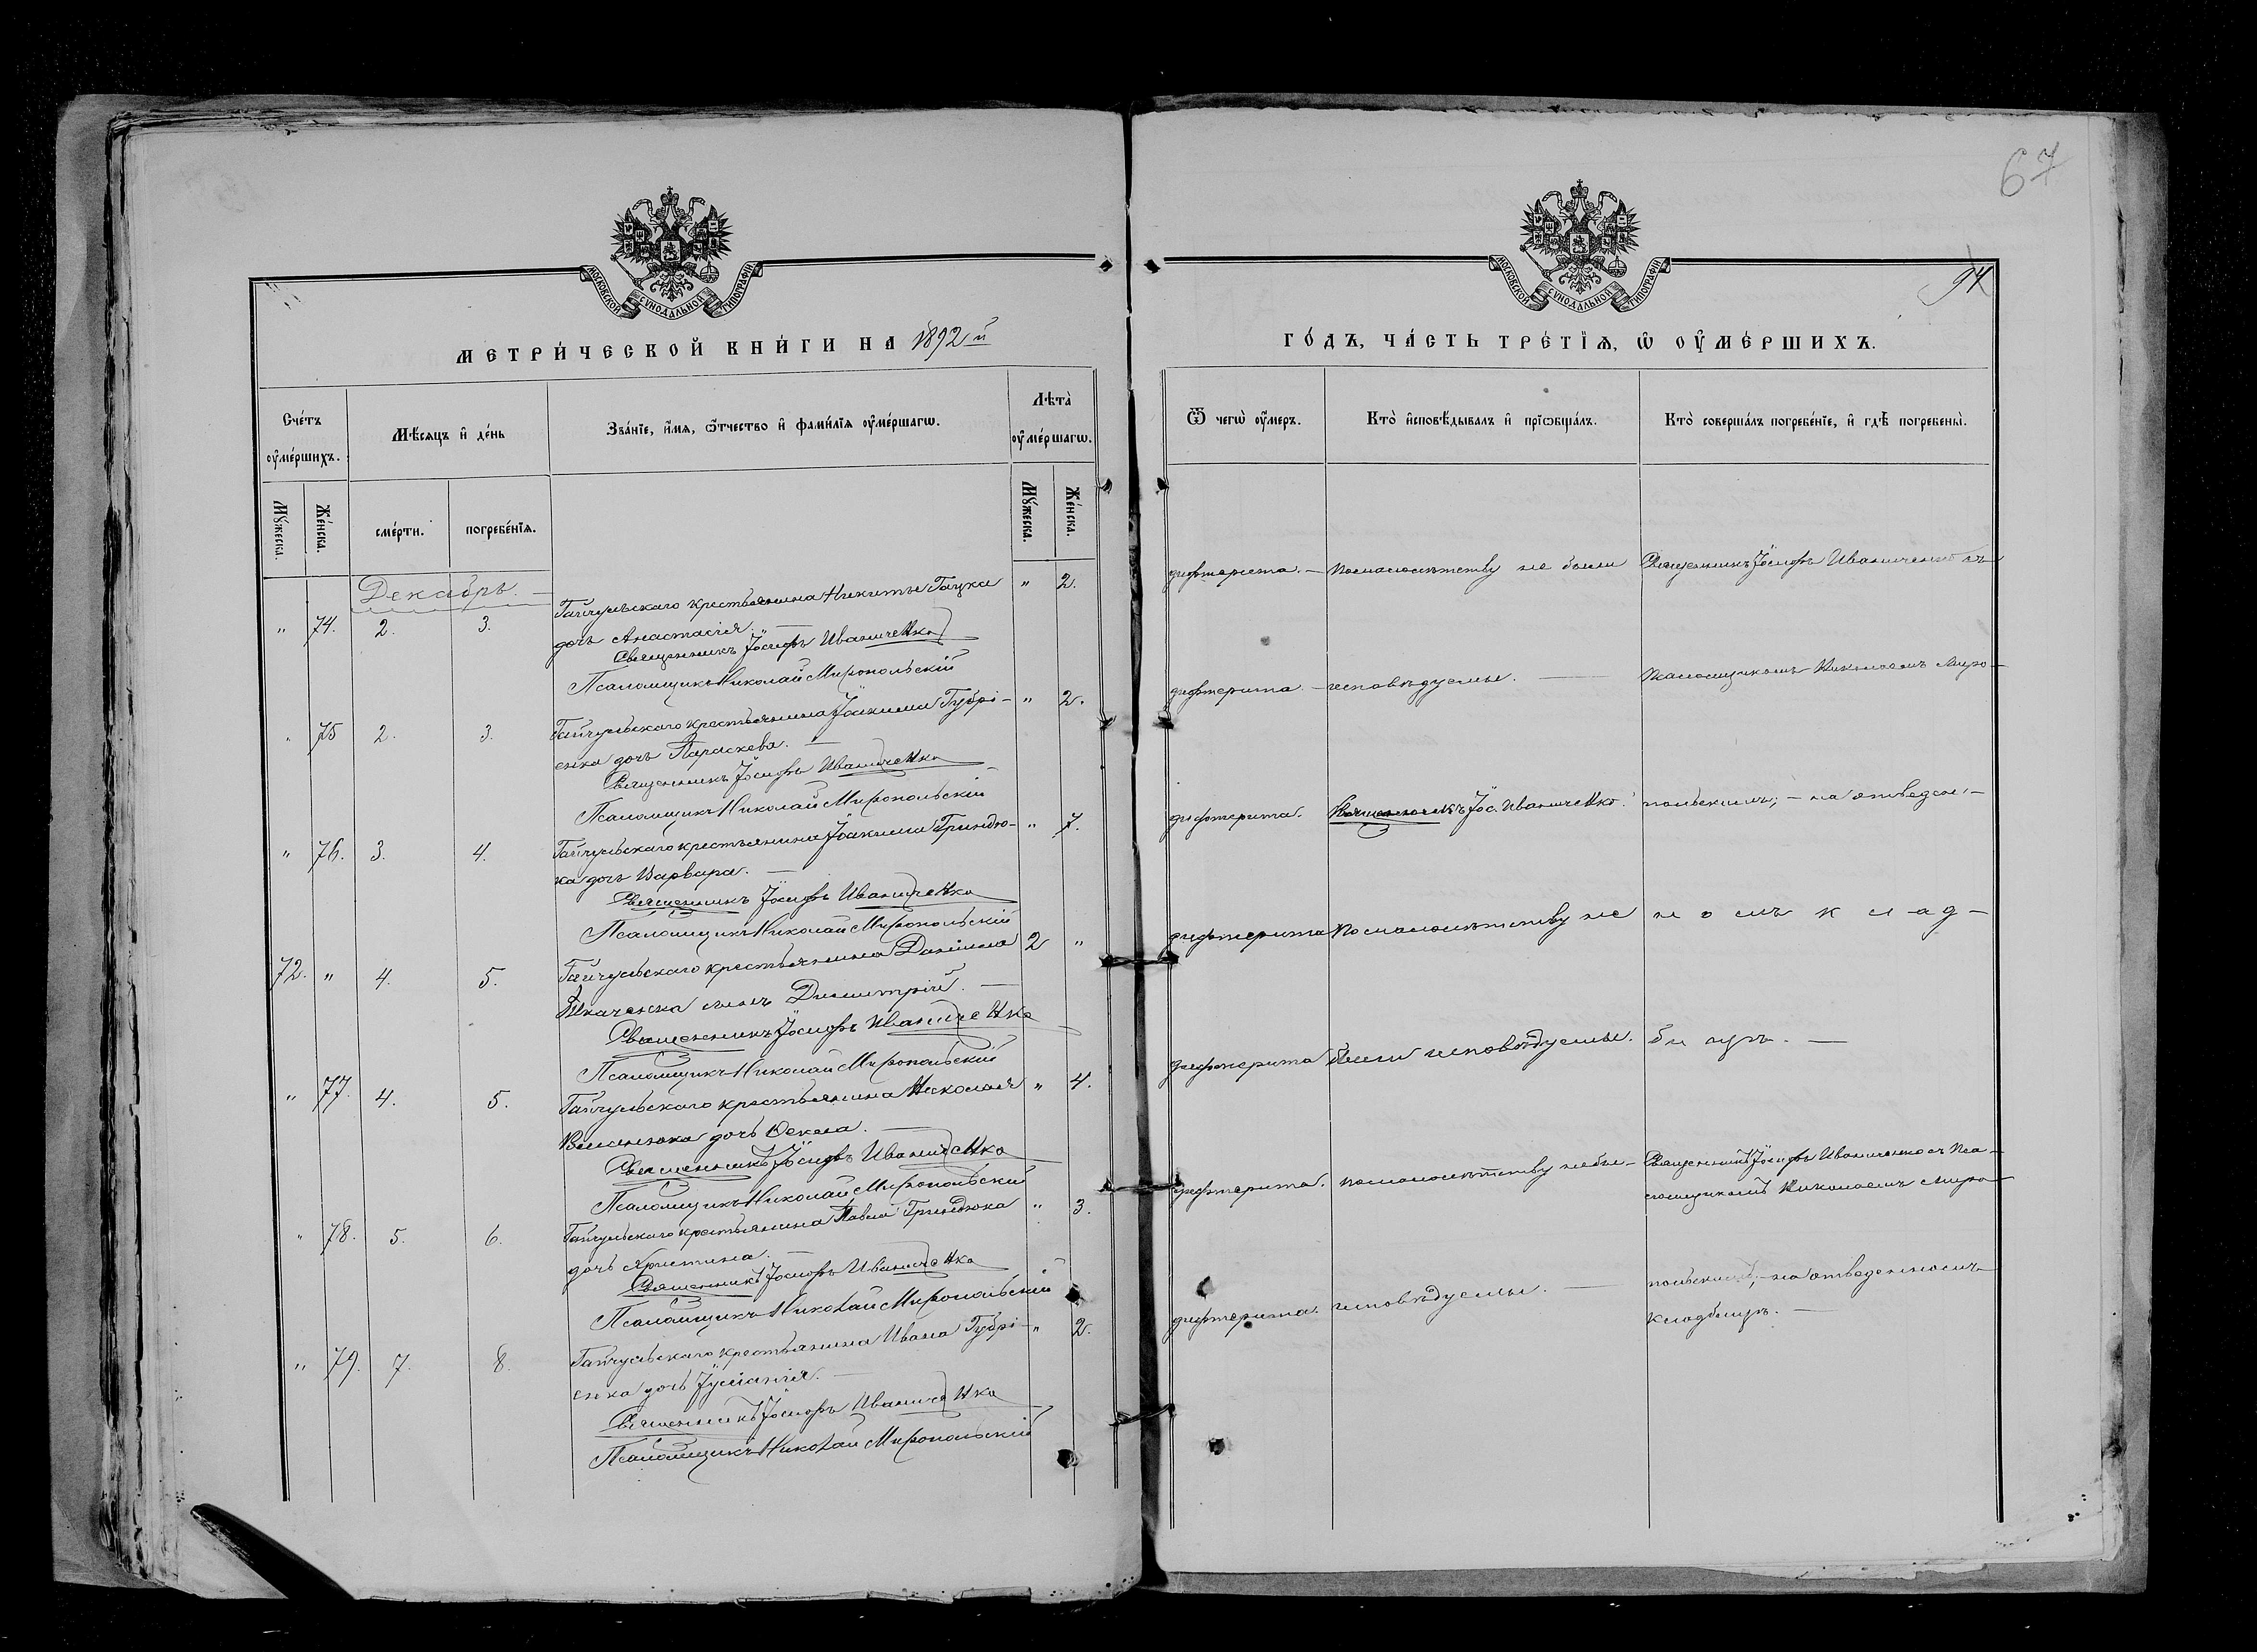 67
МОСКОВСКОЙ СѴНОДАЛЬНОЙ ТИПОГРАФІИ
МЕТРИ́ЧЕСКОЙ КНИ́ГИ НА 1892й
Сче́тъ оу҆ме́ршихъ.
Мѣ́сяцъ и҆ де́нь
Зва́нїе, и҆́мя, ѻ҆́тчество и҆ фами́лїя оу҆ме́ршагѡ.
Лѣта̀ оу҆ме́ршагѡ.
Мꙋ́жеска.
Же́нска.
сме́рти.
погребе́нїя.
Мꙋ́жеска.
Же́нска.
Декабрь.
" 74. 2. 3. Гайчульскаго крестьянина Никиты Гацка " 2.
дочь Анастасія.
Священникъ Іосифъ Иваниченко
Псаломщикъ Николай Миропольскій
" 75 2. 3. Гайчульскаго крестьянина Іоакима Губрі- " 2.
енка дочь Параскева.
Священникъ Іосифъ Иваниченко
Псаломщикъ Николай Миропольскій
" 76. 3. 4. Гайчульскаго крестьянина Іоакима Гриндю- " 7.
ка дочь Варвара.
Священникъ Іосифъ Иваниченко
Псаломщикъ Николай Миропольскій
72. " 4. 5. Гайчульскаго крестьянина Даніила 2 "
Ткаченка сынъ Димитрій.
Священникъ Іосифъ Иваниченко
Псаломщикъ Николай Миропольскій
" 77. 4. 5. Гайчульскаго крестьянина Николая " 4.
дочь Ѳекла.
Священникъ Іосифъ Иваниченко
Псаломщикъ Николай Миропольскій
" 78. 5. 6. Гайчульскаго крестьянина Павла Гриндюка " 3.
дочь Христина.
Священникъ Іосифъ Иваниченко
Псаломщикъ Николай Миропольскій
" 79. 7. 8. Гайчульскаго крестьянина Ивана Губрі- " 2.
енка дочь Іуліанія.
Священникъ Іосифъ Иваниченко
Псаломщикъ Николай Миропольскій
МОСКОВСКОЙ СѴНОДАЛЬНОЙ ТИПОГРАФІИ
94
ГО́ДЪ, ЧА́СТЬ ТРЕ́ТЇѦ, Ѡ҆ ОУ҆МЕ́РШИХЪ.
Ѿ чегѡ̀ оу҆́меръ.
Кто̀ и҆сповѣ́дывалъ и҆ прїѡбща́лъ.
Кто̀ соверша́лъ погребе́нїе, и҆ гдѣ̀ погребены̀.
дифтерита. — По малолѣтству не были Священникъ Іосифъ Иваниченко съ
дифтерита. — исповѣдуемы. — Псаломщикомъ Николаемъ Миро-
дифтерита. Священникъ Іос. Иваниченко. польскимъ; — на отведен-
дифтерита По малолѣтству не номъ клад-
дифтерита были исповѣдуемы. бищѣ. —
дифтерита. По малолѣтству не бы- Священникъ Іосифъ Иваниченко съ Пса-
ломщикомъ Николаемъ Миро-
дифтерита. исповѣдуемы. — польскимъ; на отведенномъ
кладбищѣ. —